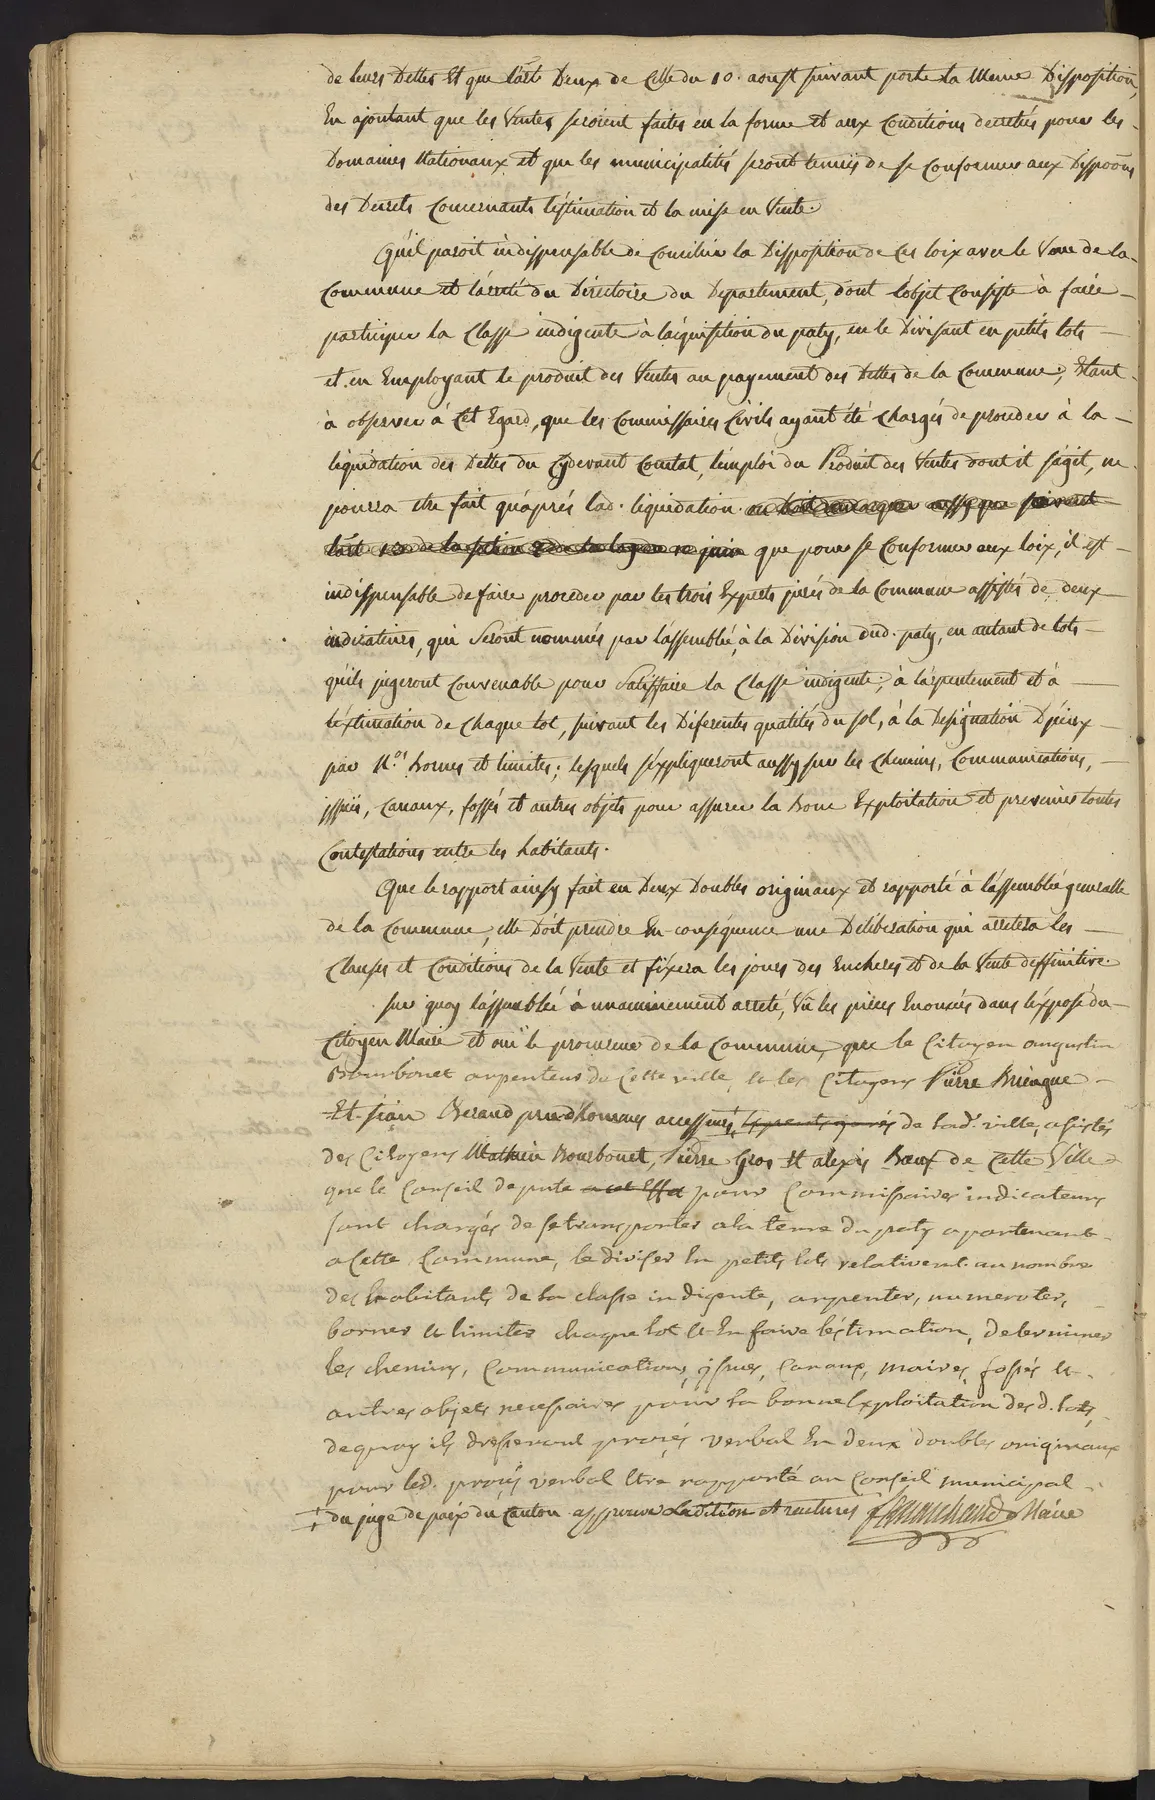 de leurs Dettes Et que l'art Deux de Celle du 10. aoust suivant porte la Meme Disposition,
En ajoutant que les Ventes seroient faites en la forme et aux Conditions decretés pour les
Domaines Nationaux et que les municipalités seront tenuës de se Conformer aux Disposōns
des Decrets Concernants l'éstimation et la mise en Vente.
Qu'il paroit indispensable de Concilier la Disposition de Ces loix avec le Vœu de la
Commune et l'arrêté du Directoire du Departement, dont l'objet Consiste à faire
participer la Classe indigente à l'acquisition du paty, en le Divisant en petits lots
et en Employant le produit des Ventes au payement des Dettes de la Commune; Etant
à observer à Cet Egard, que les Commissaires Civils ayant été Chargés de proceder à la
liquidation des Dettes du Cydevant Comtat, l'emploi du Produit des Ventes dont il s'agit, ne
pourra etre fait qu'aprés lad. liquidation. on doit remarquer aussy que suivant
l'art 13 de la section de la loy du 10 juin que pour se Conformer aux loix, il est
indispensable de faire proceder par les trois Experts jurés de la Commune assistés de deux
indicateurs, qui Seront nommés par l'assemblée, à la Division dud. paty, en autant de lots
qu'ils jugeront Convenable pour Satisfaire la Classe indigente; à l'arpentement et à
l'éstimation de Chaque lot, suivant les Diferentes qualités du sol, à la Designation D'iceux
par N.os Bornes et limites; lesquels s'éxpliqueront aussy sur les Chemins, Communications,
issuës, Canaux, fossés et autres objets pour assurer la Bonne Exploitation et prevenir toutes
Contestations entre les habitants.
Que le rapport ainsy fait en Deux Doubles originaux et rapporté à l'assemblée generalle
de la Commune, elle Doit prendre En conséquence une Deliberation qui arretera les
Clauses et Conditions de la Vente et fixera les jours des Encheres et de la Vente deffinitive.
Sur quoy l'assemblée à unanimement arreté, Vû les pièces Enoncées dans l'éxposé du
Citoyen Maire et ouï le procureur de la Commune, que le Citoyen augustin
Bourbonet arpenteur de Cette ville, et les Citoyens Pierre Briengue
Et jean Beraud prud'hommes accesseurs, Experts jurés de lad. ville, asistés
des Citoyens Mathieu Bourbouet, Pierre Gros Et alexis Bœuf de Cette Ville
que le Conseil depute a cet Effet pour Commissaires indicateurs
sont chargés de se transporter a la terre du paty apartenant
a Cette Commune, le diviser En petits lots relativemt. au nombre
des habitants de la classe indigente, arpenter, numeroter,
borner et limiter chaque lot et En faire l'éstimation, determiner
les chemins, Communications, yssues, Canaux, maires, fossés et
autres objets necessaires pour la bonne Exploitation desd. lots,
de quoy ils dresseront procés verbal En deux doubles originaux
pour led. procés verbal etre rapporté au Conseil municipal
du juge de paix du Canton approuvé l'adition et ratures Marchand Maire